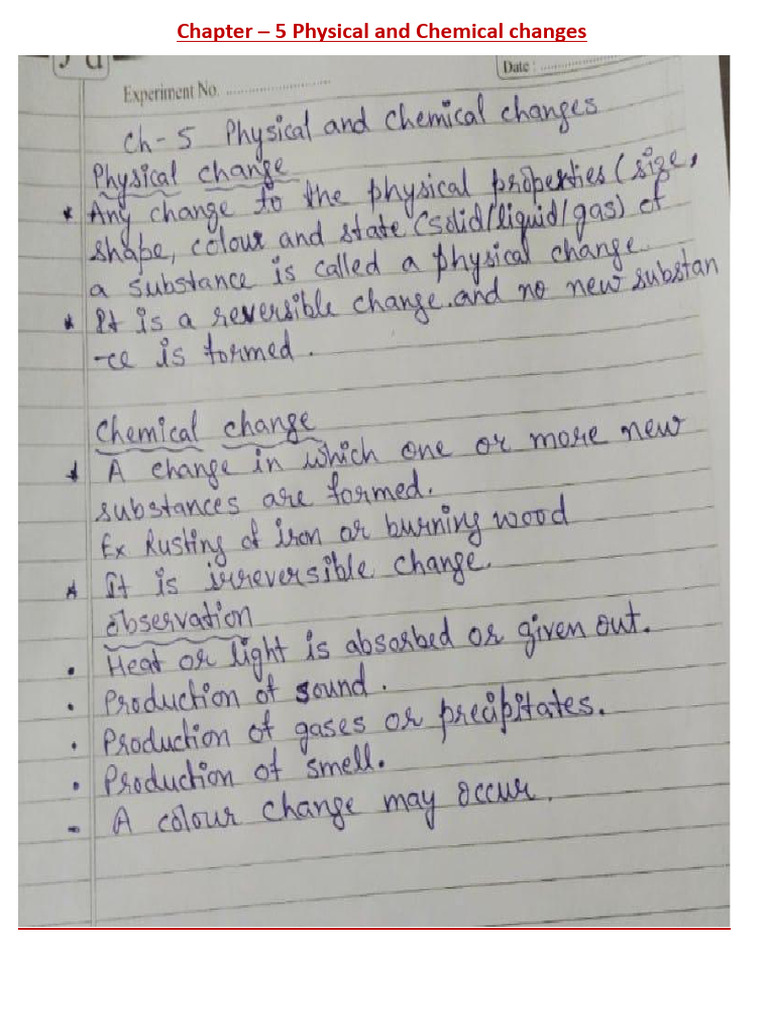 Chapter – 5 Physical and Chemical changes
Experiment No. ................................
Date : ....................
Ch-5 Physical and Chemical changes
Physical change
* Any change to the physical properties (size,
shape, colour and state (solid/liquid/gas) of
a substance is called a physical change.
* It is a reversible change.and no new substan
-ce is formed.
Chemical change
* A change in which one or more new
substances are formed.
Ex Rusting of iron or burning wood
* It is irreversible change.
Observation
• Heat or light is absorbed or given out.
• Production of sound.
• Production of gases or precipitates.
• Production of smell.
- A colour change may occur.